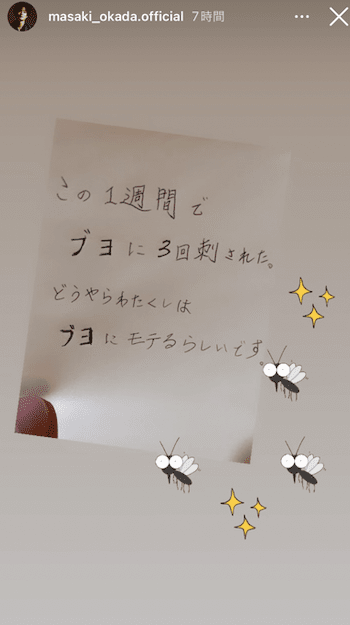 masaki_okada.official 7時間
この1週間で
ブヨに3回刺された。
どうやらわたくしは
ブヨにモテるらしいです。